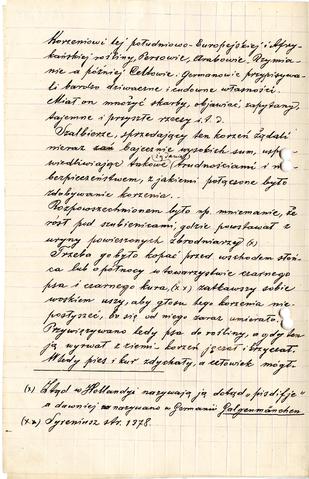 Korzeniowi tej południowo-Europejskiej i Afry-
kańskiej rośliny, Persowie, Arabowie, Rzymia-
nie a później Celtowie, Germanowie przypisywa-
li bardzo dziwaczne i cudowne własności.
Miał on mnożyć skarby, objawiać, zapytany,
tajemne i przyszłe rzeczy i.t.d.
Szalbierze, sprzedający ten korzeń żądali
nieraz zań bajecznie wysokich sum, uspra-
wiedliwiając takowe żądania trudnościami i nie-
bezpieczeństwem, z jakiemi połączone było
zdobywanie korzenia.
Rozpowszechnionem było np. mniemanie, że
rósł pod szubienicami, gdzie powstawał z
uryny powieszonych zbrodniarzy (x)
Trzeba go było kopać przed wschodem słoń-
ca lub o północy w towarzystwie czarnego
psa i czarnego kura, (x x) zatkawszy sobie
woskiem uszy, aby głosu tego korzenia nie
posłyszeć, bo się od niego zaraz umierało.
Przywiązywano tedy psa do rośliny, a gdy ten
ją wyrwał z ziemi - korzeń jęczał i krzyczał.
Wtedy pies i kur zdychały, a człowiek mógł
(x) Ztąd w Hollandyi nazywają ją dotąd „pisdifje"
a dawniej nazywano w Germanii Galgenmänchen
(x x) Syreniusz str. 1378.